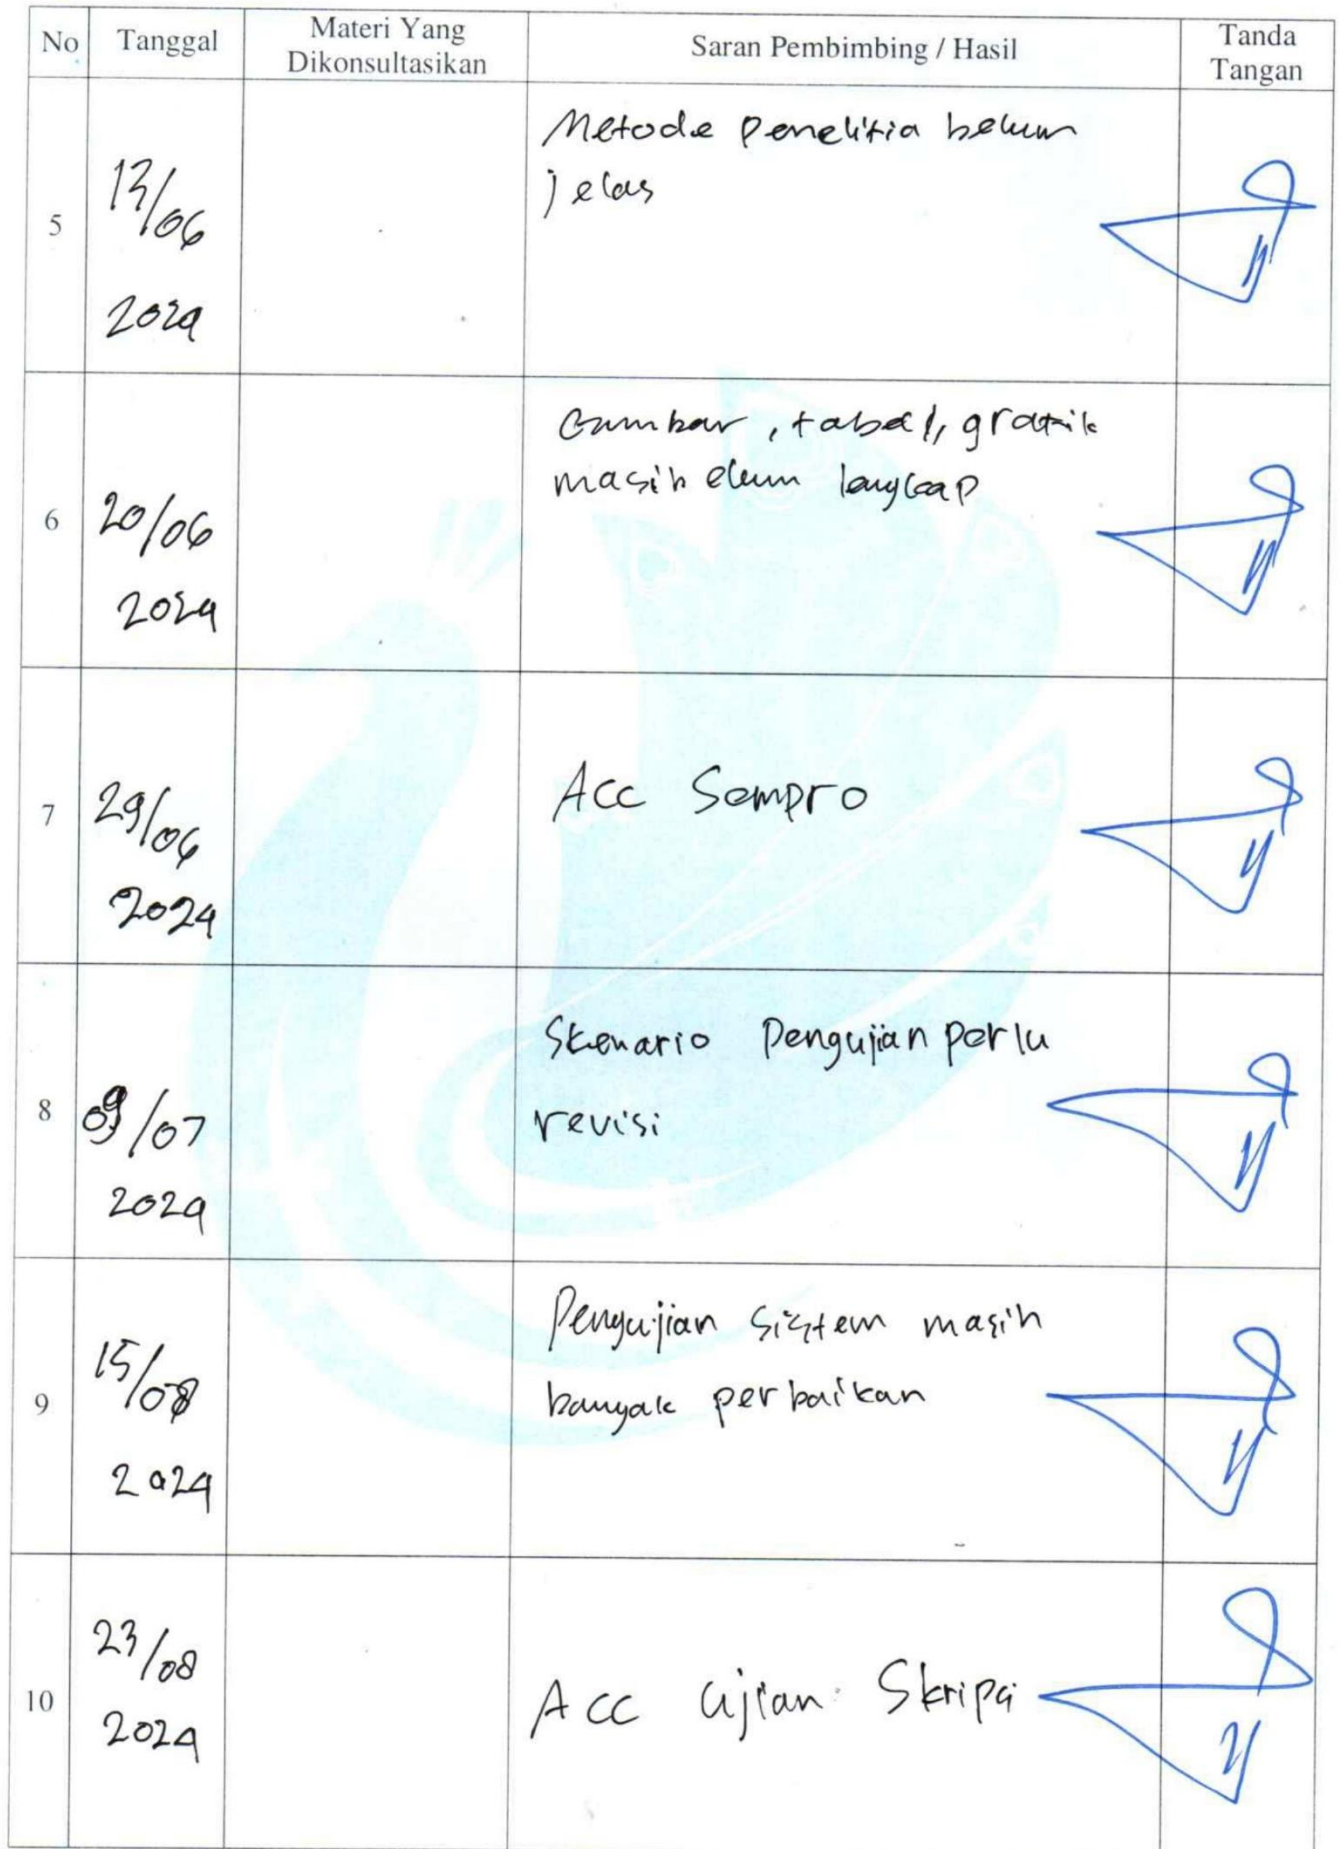 No Tanggal Materi Yang Dikonsultasikan Saran Pembimbing / Hasil Tanda Tangan
5
13/06
2024
Metode Penelitia belum
jelas
6
20/06
2024
Gambar, tabel, grafik
masih elum lengkap
7
29/06
2024
Acc Sempro
8
09/07
2024
Skenario Pengujian perlu
revisi
9
15/08
2024
Pengujian sistem masih
banyak perbaikan
10
23/08
2024
Acc Ujian Skripsi